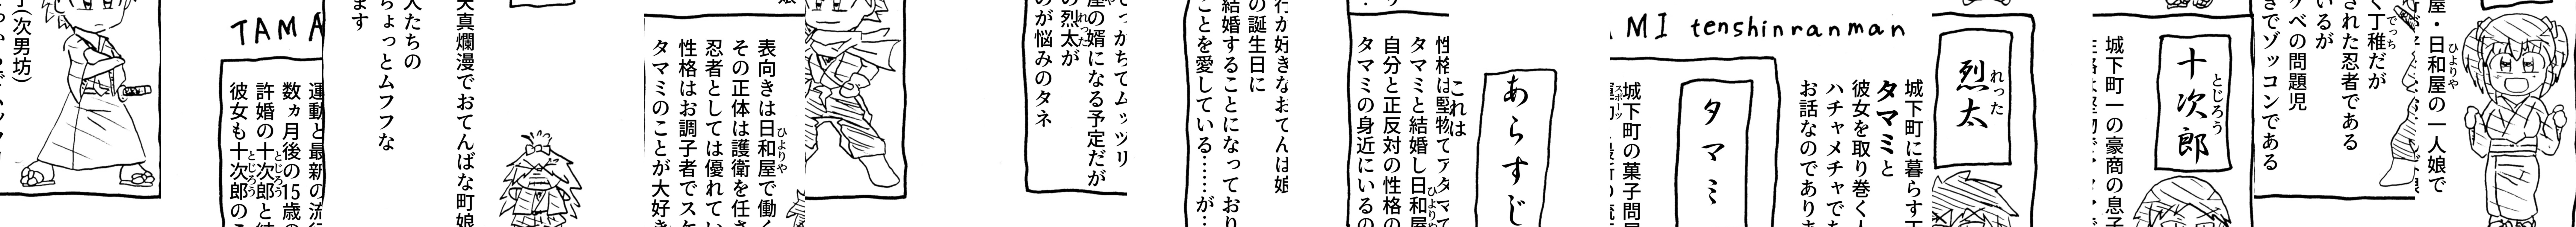 (次男坊)
TAMA
運動と最新の流行
数ヵ月後の15歳の
許婚の十次郎と結
彼女も十次郎のこ
天真爛漫でおてんばな町娘
人たちの
ちょっとムフフな
ます
表向きは日和屋で働く
その正体は護衛を任さ
忍者としては優れてい
性格はお調子者でスケ
タマミのことが大好き
でっかちでムッツリ
屋の婿になる予定だが
の烈太が
のが悩みのタネ
行が好きなおてんば娘
の誕生日に
結婚することになっており
ことを愛している……が…
性格は堅物でアタマで
タマミと結婚し日和屋
自分と正反対の性格の
タマミの身近にいるの
あらすじ
これは
MI tenshinranman
城下町に暮らす
タマミと
彼女を取り巻く人
ハチャメチャでち
お話なのであり
タマミ
城下町の菓子問屋
烈太
十次郎
城下町一の豪商の息子
く丁稚だが
された忍者である
いるが
ケベの問題児
きでゾッコンである
屋・日和屋の一人娘で